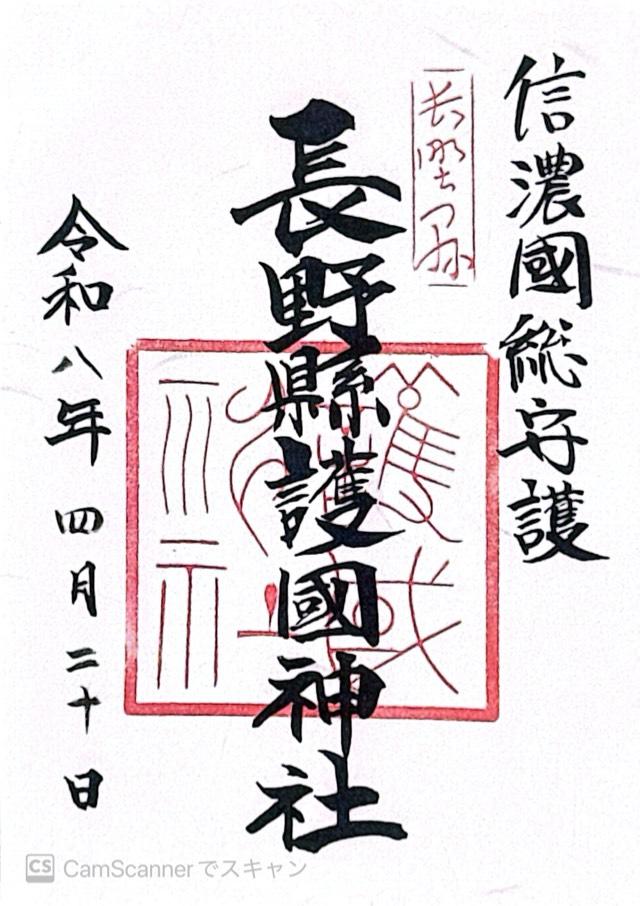 信濃國総守護
長野縣護國神社
令和八年 四月二十日
CS CamScannerでスキャン